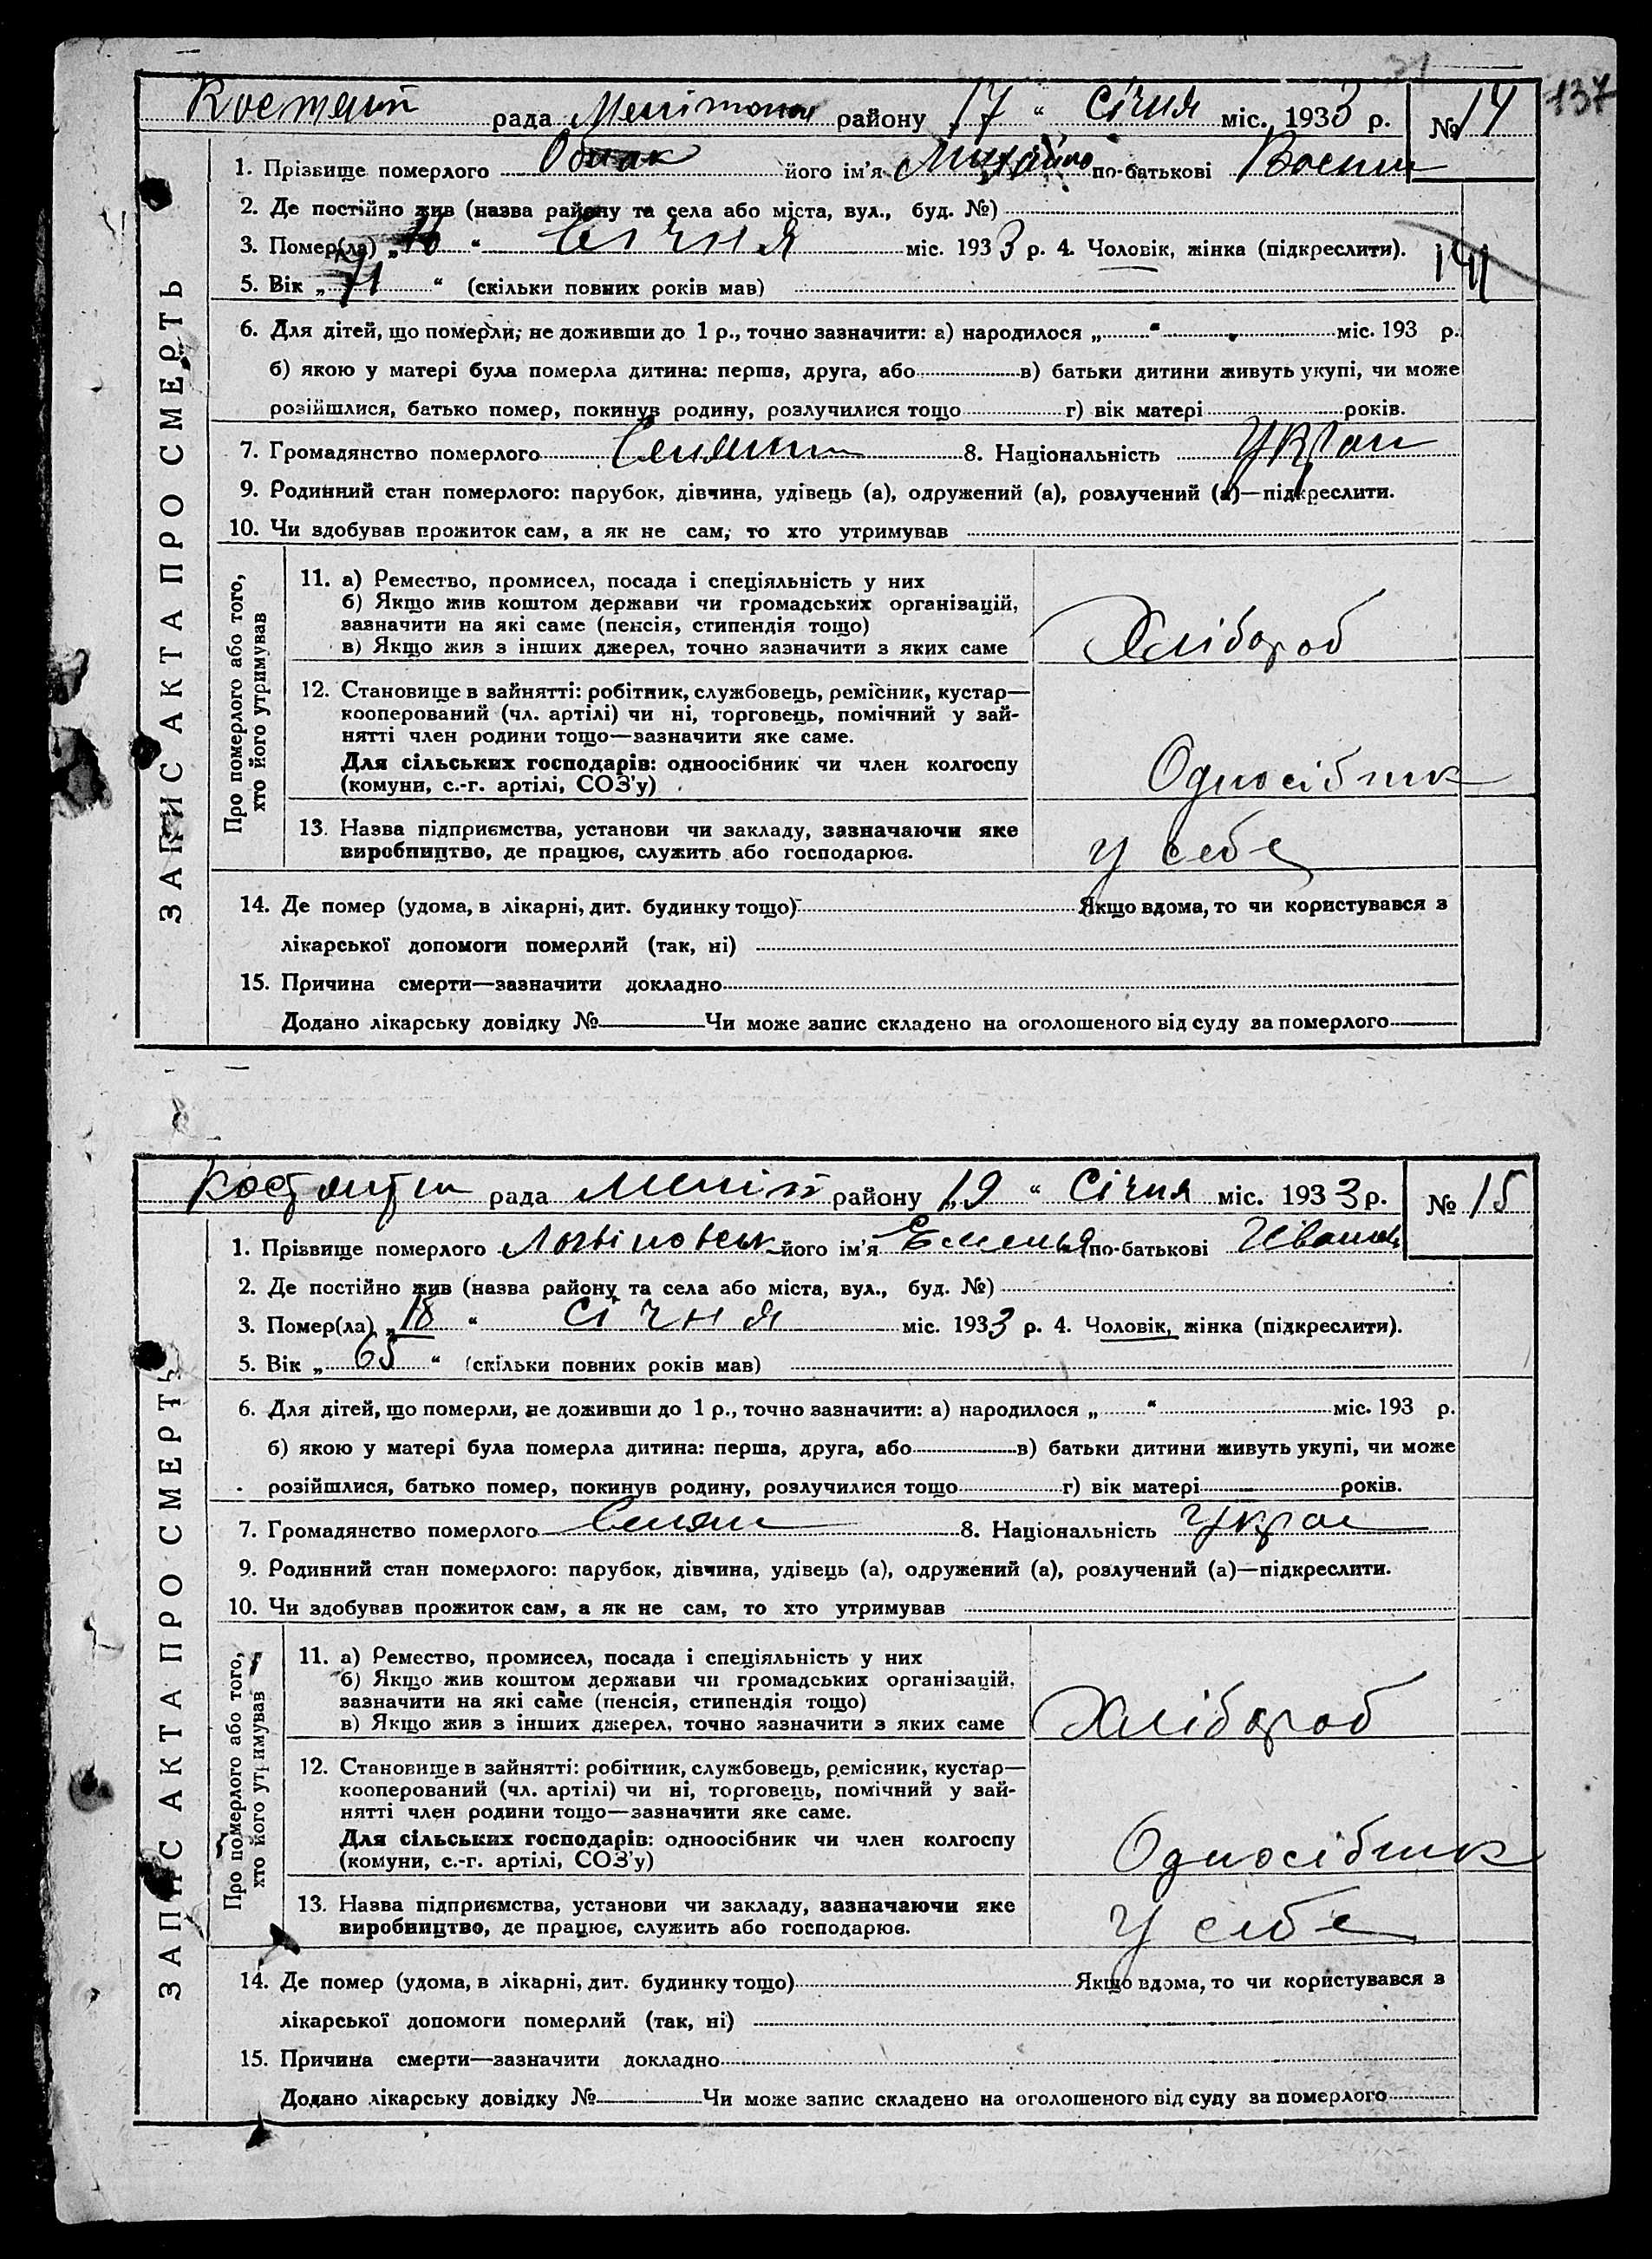 137
рада району 17 “ Січня міс. 1933 р. № 14
1. Прізвище померлого його ім'я Михайло по-батькові
2. Де постійно жив (назва району та села або міста, вул., буд. №)
3. Помер(ла) „16 “ Січня міс. 1933 р. 4. Чоловік, жінка (підкреслити).
5. Вік „ 71 “ (скільки повних років мав)
6. Для дітей, що померли, не доживши до 1 р., точно зазначити: а) народилося „ “ міс. 193 р.
б) якою у матері була померла дитина: перша, друга, або в) батьки дитини живуть укупі, чи може
розійшлися, батько помер, покинув родину, розлучилися тощо г) вік матері років.
7. Громадянство померлого 8. Національність Украі
9. Родинний стан померлого: парубок, дівчина, удівець (а), одружений (а), розлучений (а)—підкреслити.
10. Чи здобував прожиток сам, а як не сам, то хто утримував
Про померлого або того,
хто його утримував
11. а) Ремество, промисел, посада і спеціяльність у них
б) Якщо жив коштом держави чи громадських організацій,
зазначити на які саме (пенсія, стипендія тощо)
в) Якщо жив з інших джерел, точно зазначити з яких саме
Хлібороб
12. Становище в зайнятті: робітник, службовець, ремісник, кустар—
кооперований (чл. артілі) чи ні, торговець, помічний у зай-
нятті член родини тощо—зазначити яке саме.
Для сільських господарів: одноосібник чи член колгоспу
(комуни, с.-г. артілі, СОЗ'у)
Одноосібник
13. Назва підприємства, установи чи закладу, зазначаючи яке
виробництво, де працює, служить або господарює.
у себе
14. Де помер (удома, в лікарні, дит. будинку тощо) Якщо вдома, то чи користувався з
лікарської допомоги померлий (так, ні)
15. Причина смерти—зазначити докладно
Додано лікарську довідку № Чи може запис складено на оголошеного від суду за померлого
ЗАПИС АКТА ПРО СМЕРТЬ
рада району 19 “ Січня міс. 1933 р. № 15
1. Прізвище померлого Логвіновськ його ім'я Емельян по-батькові Іванов
2. Де постійно жив (назва району та села або міста, вул., буд. №)
3. Помер(ла) „18 “ січня міс. 1933 р. 4. Чоловік, жінка (підкреслити).
5. Вік „ 65 “ (скільки повних років мав)
6. Для дітей, що померли, не доживши до 1 р., точно зазначити: а) народилося „ “ міс. 193 р.
б) якою у матері була померла дитина: перша, друга, або в) батьки дитини живуть укупі, чи може
розійшлися, батько помер, покинув родину, розлучилися тощо г) вік матері років.
7. Громадянство померлого Селян 8. Національність Украї
9. Родинний стан померлого: парубок, дівчина, удівець (а), одружений (а), розлучений (а)—підкреслити.
10. Чи здобував прожиток сам, а як не сам, то хто утримував
Про померлого або того,
хто його утримував
11. а) Ремество, промисел, посада і спеціяльність у них
б) Якщо жив коштом держави чи громадських організацій,
зазначити на які саме (пенсія, стипендія тощо)
в) Якщо жив з інших джерел, точно зазначити з яких саме
Хлібороб
12. Становище в зайнятті: робітник, службовець, ремісник, кустар—
кооперований (чл. артілі) чи ні, торговець, помічний у зай-
нятті член родини тощо—зазначити яке саме.
Для сільських господарів: одноосібник чи член колгоспу
(комуни, с.-г. артілі, СОЗ'у)
Одноосібник
13. Назва підприємства, установи чи закладу, зазначаючи яке
виробництво, де працює, служить або господарює.
У себе
14. Де помер (удома, в лікарні, дит. будинку тощо) Якщо вдома, то чи користувався з
лікарської допомоги померлий (так, ні)
15. Причина смерти—зазначити докладно
Додано лікарську довідку № Чи може запис складено на оголошеного від суду за померлого
ЗАПИС АКТА ПРО СМЕРТЬ